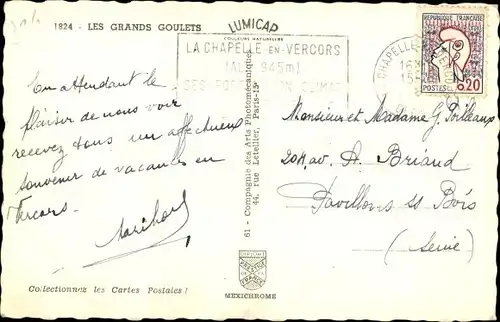 1824 - LES GRANDS GOULETS
LUMICAP
COULEURS NATURELLES
LA CHAPELLE-EN-VERCORS
(ALT 945m)
CHAPELLE
REPUBLIQUE FRANCAISE
POSTES 0,20
En attendant le
plaisir de vous voir
recevez tous un affectueux
souvenir de vacances en
Vercors.
61 - Compagnie des Arts Photomécaniques
44, rue Letellier, Paris-15e
Monsieur et Madame G.
204, av. A. Briand
Pavillons ss Bois
(Seine)
DIPLOME
PRESTIGE
DE
FRANCE
Collectionnez les Cartes Postales !
MEXICHROME